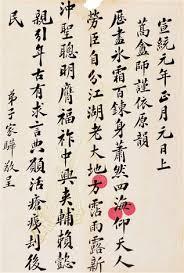 宣統元年正月元日上
萬盦師謹依原韻
歷盡冰霜百鍊身蕭然四海仰天人
勞臣自分江湖老大地方露雨露新
沖聖聰明膺福祚中興夾輔賴懿
親引年古有求言典願活瘡痍刦後
民
弟子家驊敬呈